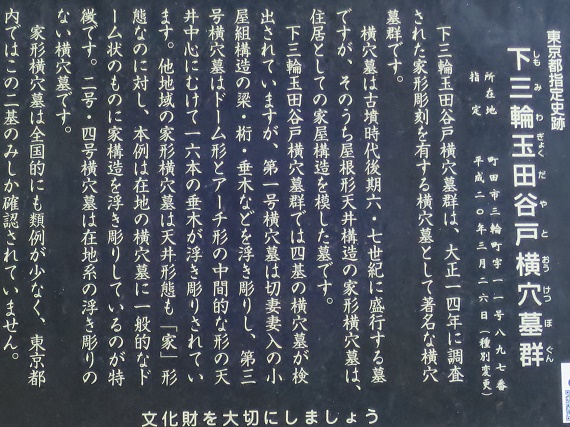 東京都指定史跡
下三輪玉田谷戸横穴墓群
しもみわぎょくだやとおうけつぼぐん
所在地 町田市三輪町字一一号八九七番
指定 平成二〇年三月二六日（種別変更）
下三輪玉田谷戸横穴墓群は、大正一四年に調査
された家形彫刻を有する横穴墓として著名な横穴
墓群です。
横穴墓は古墳時代後期六・七世紀に盛行する墓
ですが、そのうち屋根形天井構造の家形横穴墓は、
住居としての家屋構造を模した墓です。
下三輪玉田谷戸横穴墓群では四基の横穴墓が検
出されていますが、第一号横穴墓は切妻妻入の小
屋組構造の梁・桁・垂木などを浮き彫りし、第三
号横穴墓はドーム形とアーチ形の中間的な形の天
井中心にむけて一六本の垂木が浮き彫りされてい
ます。他地域の家形横穴墓は天井形態も「家」形
態なのに対し、本例は在地の横穴墓に一般的なド
ーム状のものに家構造を浮き彫りしているのが特
徴です。二号・四号横穴墓は在地系の浮き彫りの
ない横穴墓です。
家形横穴墓は全国的にも類例が少なく、東京都
内ではこの二基のみしか確認されていません。
文化財を大切にしましょう